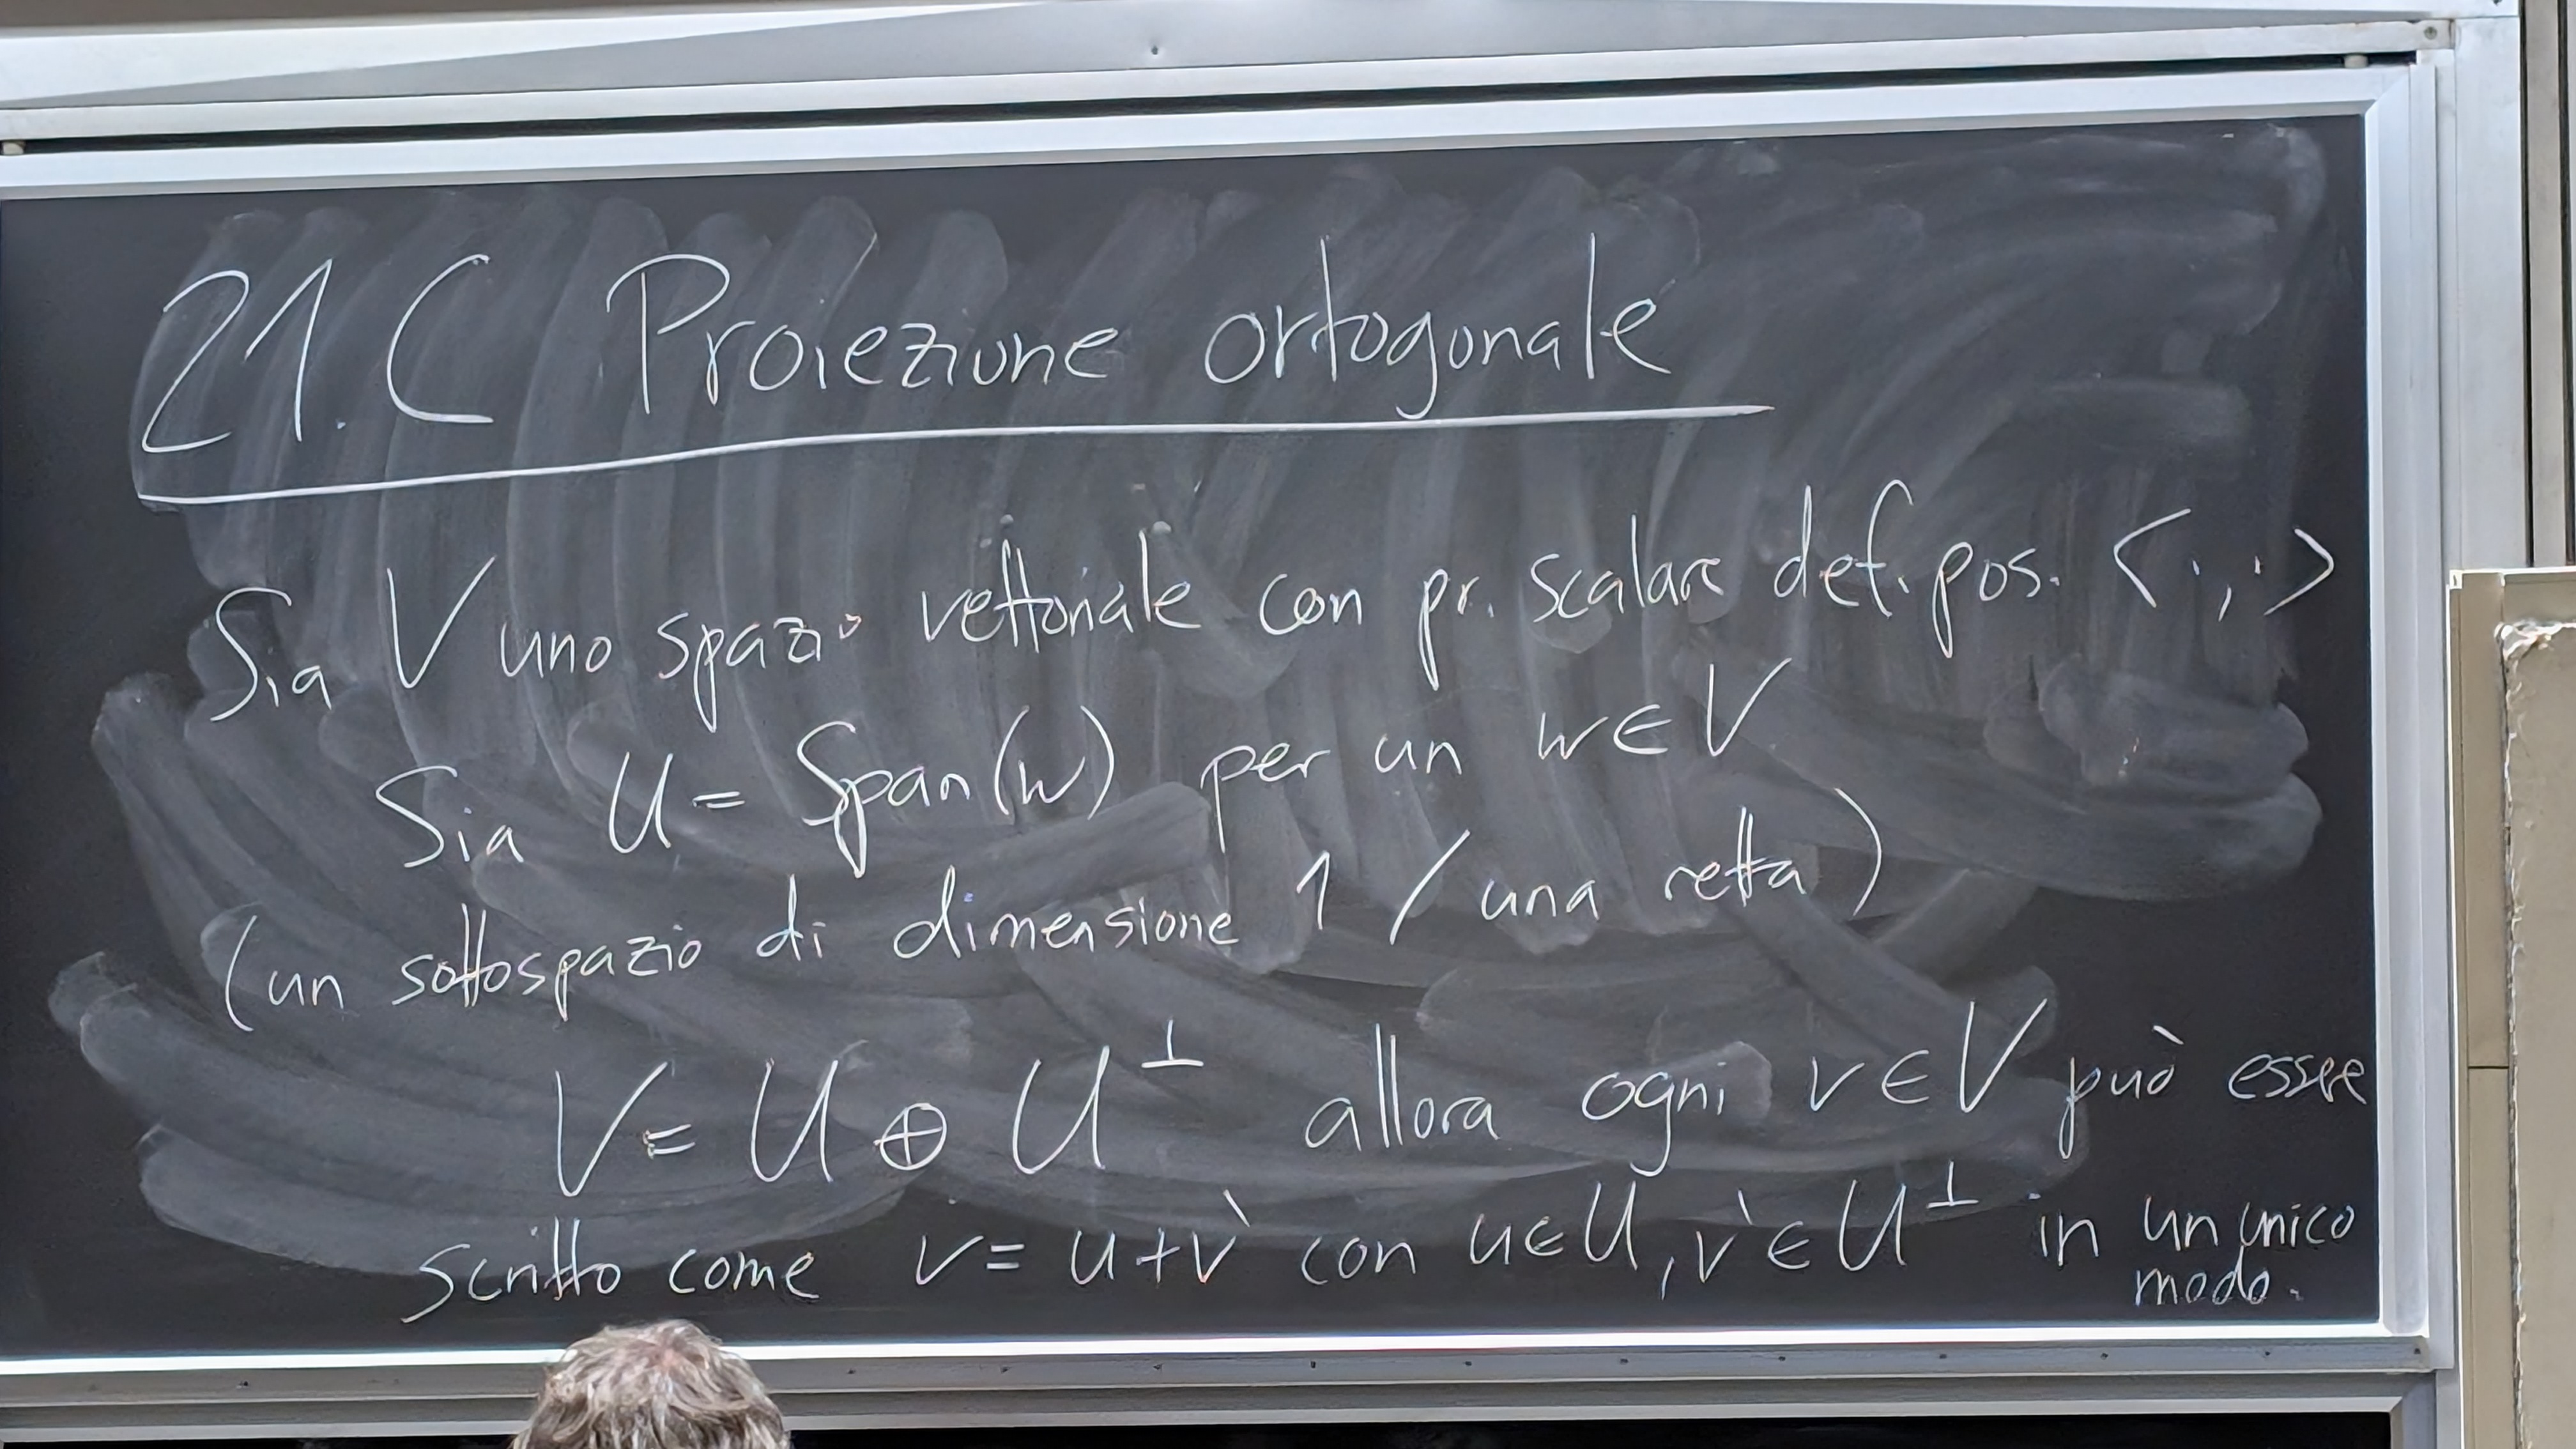 21.C Proiezione ortogonale
Sia V uno spazio vettoriale con pr. scalare def. pos. <·,·>
Sia U = Span(w) per un w ∈ V
(un sottospazio di dimensione 1 / una retta)
V = U ⊕ U^⊥ allora ogni v ∈ V può essere
scritto come v = u + v' con u ∈ U, v' ∈ U^⊥ in un unico
modo.